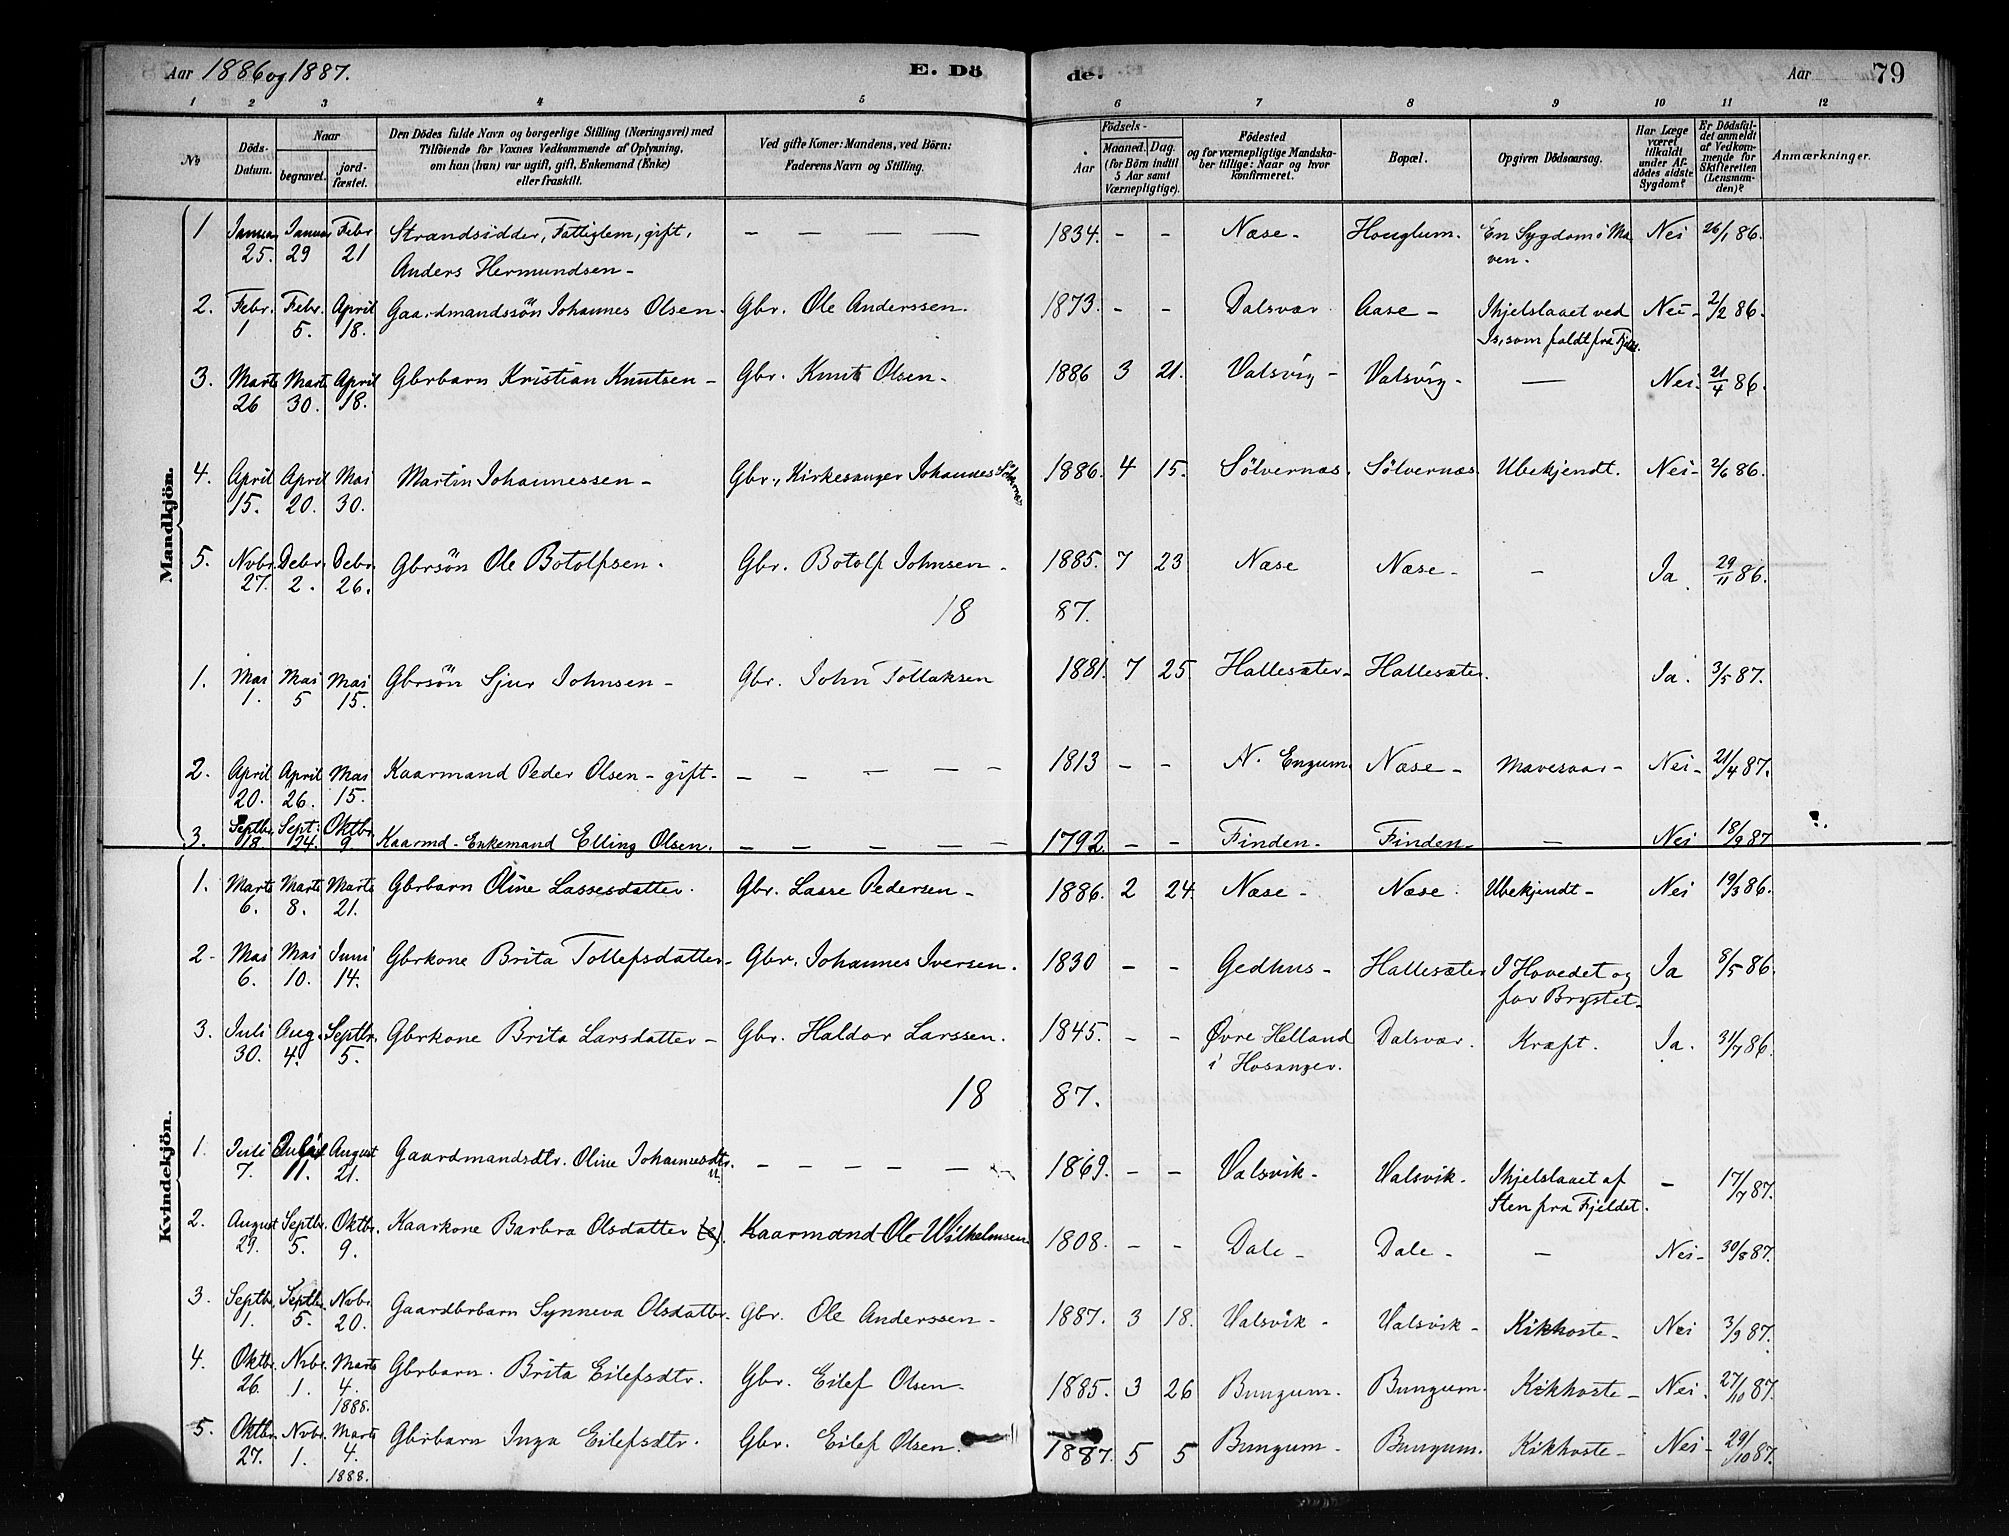 Aar 1886 og 1887. E. Dö de. Aar 79
1 2 3 4 5 6 7 8 9 10 11 12
No
Döds-Datum.
Naar
begravet.
jord-fæstet.
Den Dödes fulde Navn og borgerlige Stilling (Næringsvei) med
Tilföiende for Voxnes Vedkommende af Oplysning,
om han (hun) var ugift, gift, Enkemand (Enke)
eller fraskilt.
Ved gifte Koner: Mandens, ved Börn:
Faderens Navn og Stilling.
Födsels-
Aar
Maaned. Dag.
(for Börn indtil
5 Aar samt
Værnepligtige).
Födested
og for værnepligtige Mandska-
ber tillige: Naar og hvor
konfirmeret.
Bopæl.
Opgiven Dödsaarsag.
Har Læge
været
tilkaldt
under Af-
dödes sidste
Sygdom?
Er Dödsfal-
det anmeldt
af Vedkom-
mende for
Skifteretten
(Lensman-
den)?
Anmærkninger.
Mandkjön.
1 Januar Januar Febr Strandsidder, Fattiglem, gift, — — — — 1834. - - Næse - Houglum. En Sygdom i Ma Nei 26/1 86.
25. 29 21 Anders Hermundsen - ven.
2. Febr. Febr. April Gaardmandssön Johannes Olsen. Gbr. Ole Anderssen. 1873. - - Dalsvær Aase - Ihjelslaaet ved Nei - 2/2 86.
1 5. 18. Is, som faldt fra
3. Marts Marts April Gbrbarn Kristian Knutsen - Gbr. Knut Olsen - 1886 3 21. Valsvig - Valsvig - — Nei. 21/4 86.
26 30. 18.
4. April April Mai Martin Johannessen - Gbr., Kirkesanger Johannes 1886. 4 15. Sölvernæs. Sölvernæs. Ubekjendt. Nei - 2/6 86.
15. 20. 30.
5. Novbr. Debr. Debr. Gbrsön Ole Botolfsen. Gbr. Botolf Johnsen - 1885. 7 23 Næse Næse - - Ja. 29/11 86.
27. 2. 26.
18 87.
1. Mai Mai Mai Gbrsön Sjur Johnsen - Gbr. John Tollaksen 1881. 7 25. Hallesæter - Hallesæter. Ja. 3/5 87.
1. 5 15.
2. April April Mai Kaarmand Peder Olsen - gift - — — — — — 1813 - - N. Engum. Næse - Mavesaar - Nei - 21/4 87.
20. 26. 15.
3. Septbr. Sept: Oktbr. Kaarmd - Enkemand Elling Olsen. — — — — — 1792. - - Finden - Finden - — Nei 18/9 87
18 24. 9
Kvindekjön.
1. Marts Marts Marts Gbrbarn Oline Lassesdatter. Gbr. Lasse Pedersen - 1886. 2 24. Næse - Næse. Ubekjendt - Nei 19/3 86.
6. 8. 21.
2- Mai Mai Juni Gbrkone Brita Tollefsdatter - Gbr. Johannes Iversen. 1830 - - Gedhus - Hallesæter I Hovedet og Ja 8/5 86.
6. 10. 14. for Brystet.
3. Juli Aug. Septbr. Gbrkone Brita Larsdatter - Gbr. Haldor Larssen. 1845. - - Øvre Helland Dalsvær. Kræft. Ja. 31/7 86.
30. 4. 5. i Hosanger.
18 87.
1. Juli August Gaardmandsdtr. Oline Johannesdtr. — — — — — 1869. - - Valsvik. Valsvik. Ihjelslaaet af — 17/7 87.
7. 11. 21. u. Sten fra Fjeldet.
2. August Septbr. Oktbr. Kaarkone Barbra Olsdatter (e). Kaarmand Ole Wilhelmsen 1808. - - Dale - Dale - — Nei - 30/8 87.
29. 5. 9.
3. Septbr. Septbr. Novbr. Gaardbrbarn Synneva Olsdatter. Gbr. Ole Anderssen - 1887. 3 18. Valsvik - Valsvik - Kikhoste - Nei 3/9 87.
1. 5. 20.
4. Oktbr. Nvbr. Marts Gbrbarn. Brita Eilefsdtr. Gbr. Eilef Olsen - 1885. 3 26 Bungum. Bungum. Kikhoste - Nei. 27/10 87.
26. 1. 4.
1888.
5. Oktbr. Nvbr. Marts Gbrbarn Inga Eilefsdtr. Gbr. Eilef Olsen. 1887. 5 5 Bungum - Bungum. Kikhoste - Nei - 29/10 87.
27. 1. 4.
1888.